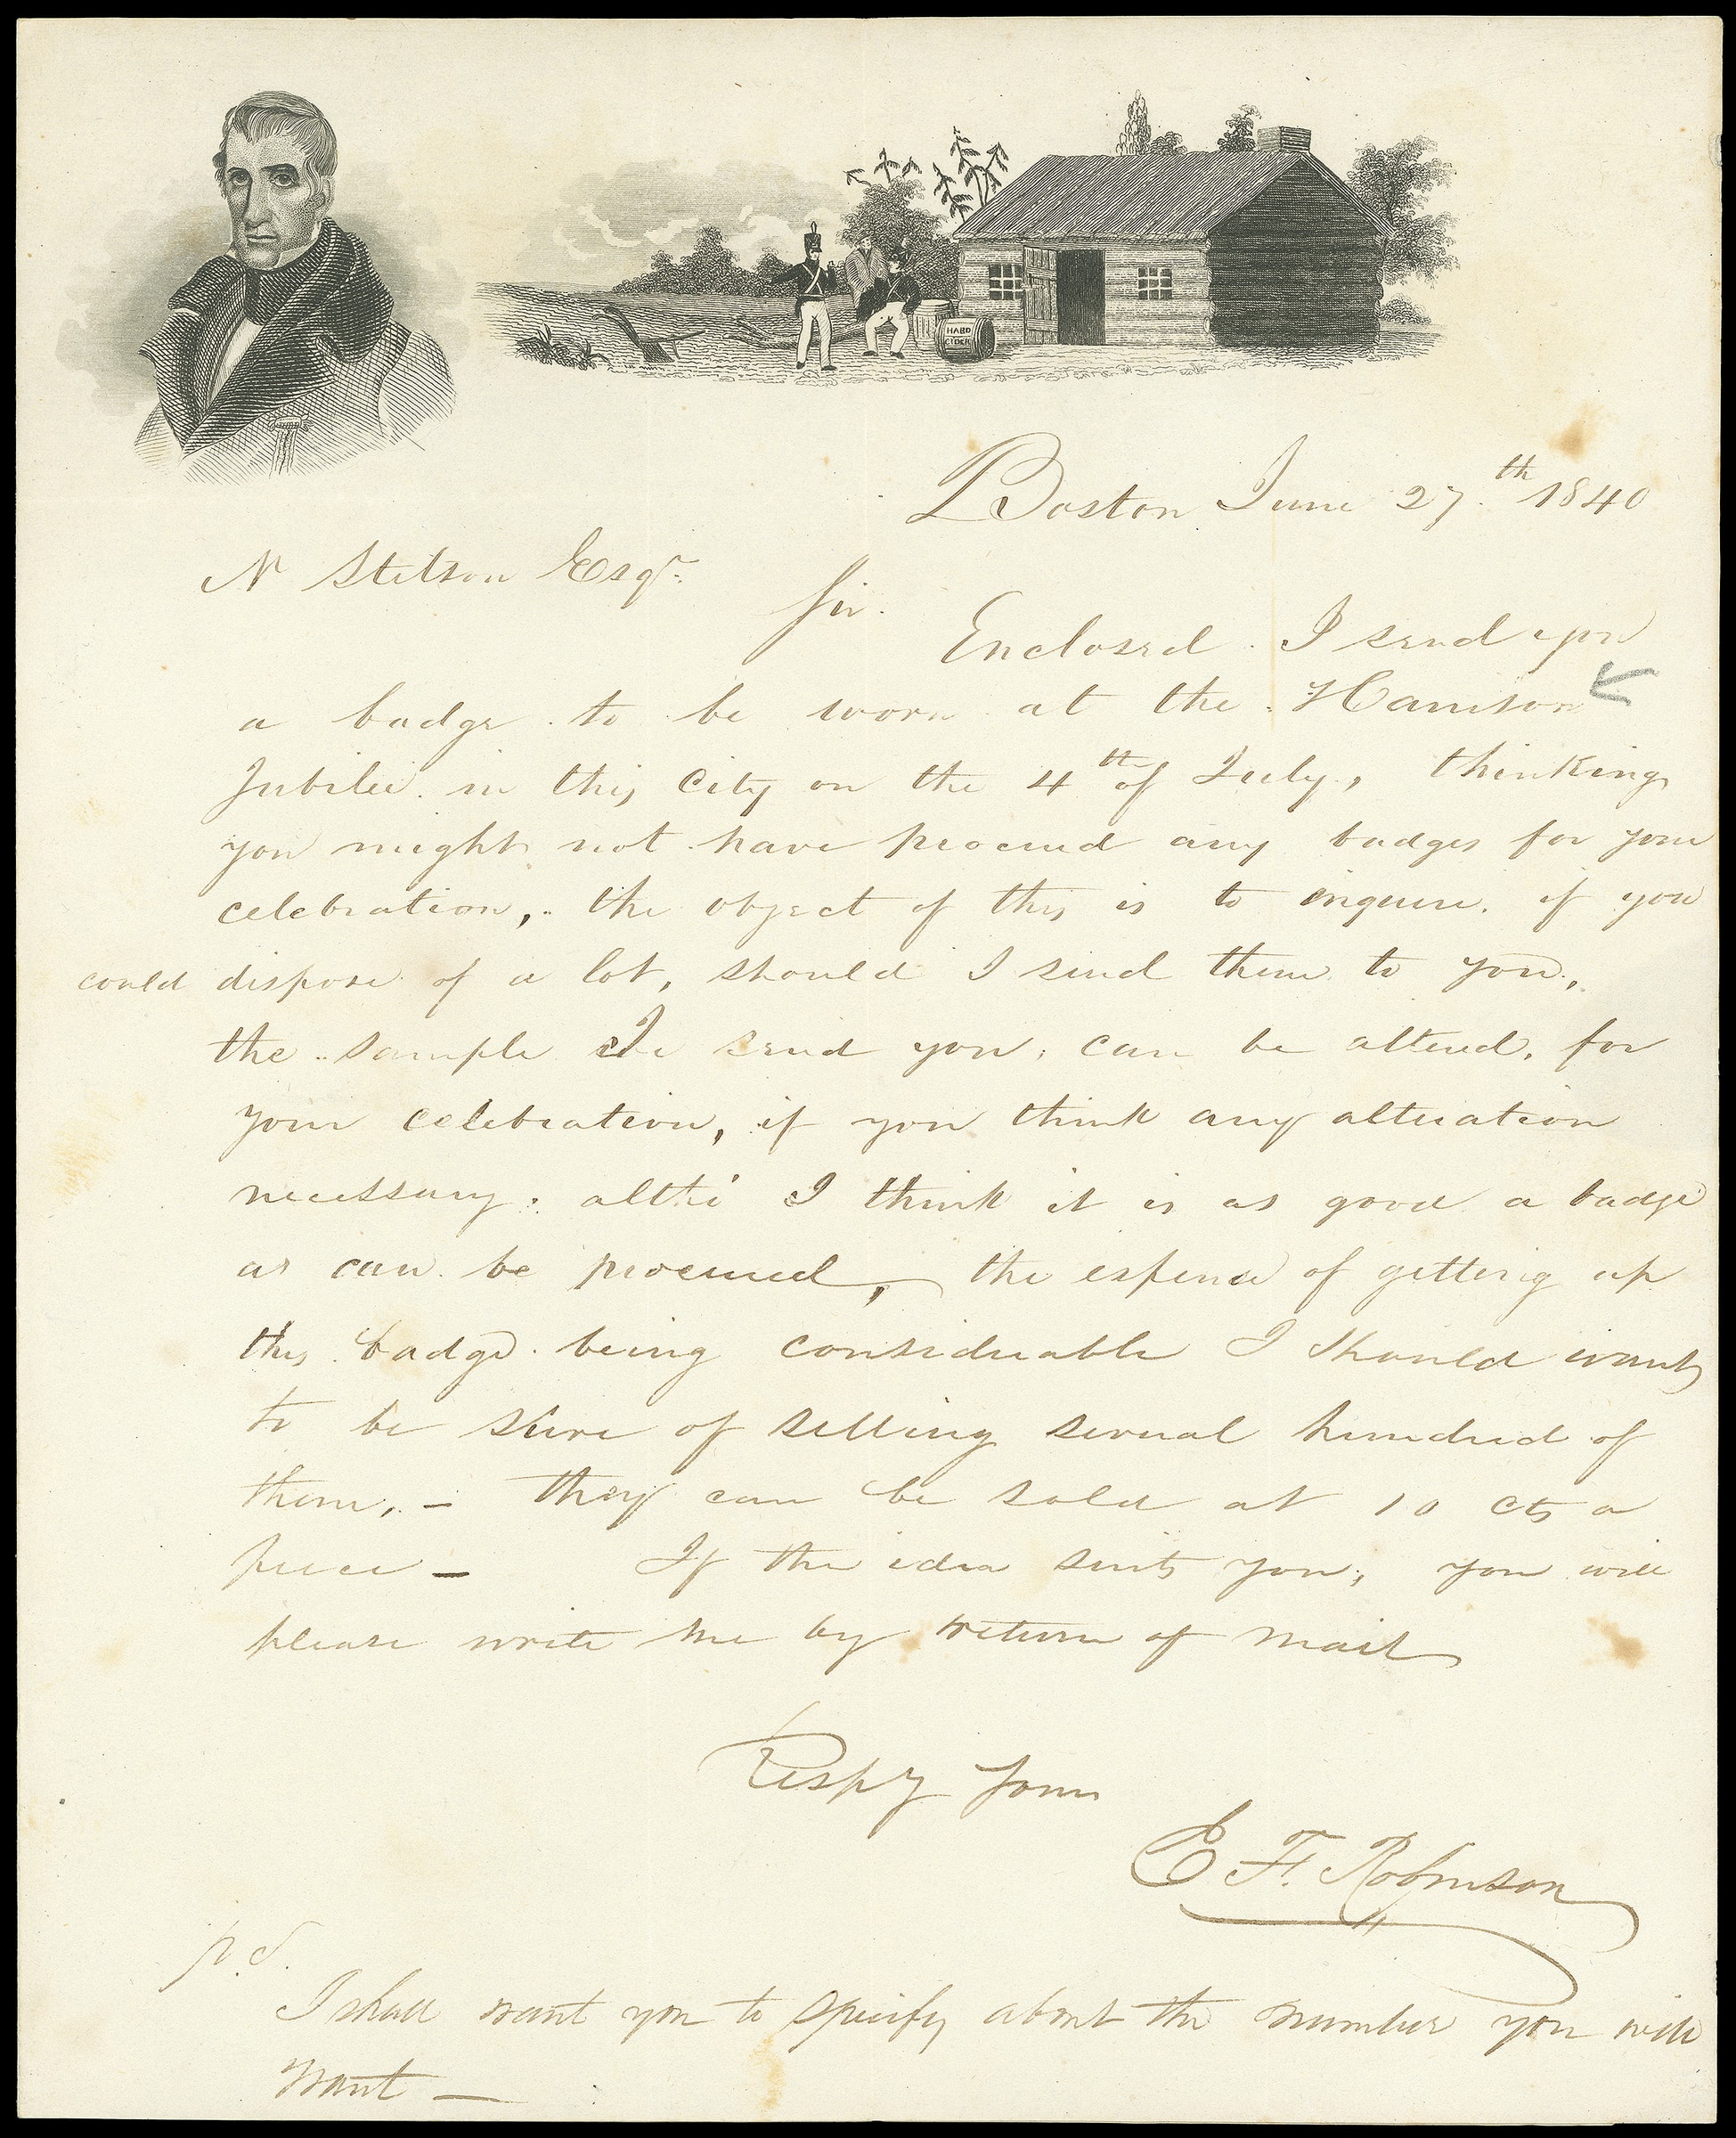 HARD
CIDER
Boston June 27.th 1840
N Stetson Esqr.
Sir.
Enclosed I send you
a badge to be worn at the Harrison
Jubilee in this City on the 4th of July, thinking
you might not have procured any badges for your
celebration, the object of this is to enquire if you
could dispose of a lot, should I send them to you,
the sample I send you, can be altered, for
your celebration, if you think any alteration
necessary. altho' I think it is as good a badge
as can be procured, the expense of getting up
this badge being considerable I should want
to be sure of selling several hundred of
them, – they can be sold at 10 cts a
piece – If the idea suits you, you will
please write me by return of mail
Respy Yours
E. F. Robinson
p.s.
I shall want you to specify about the number you will
want —